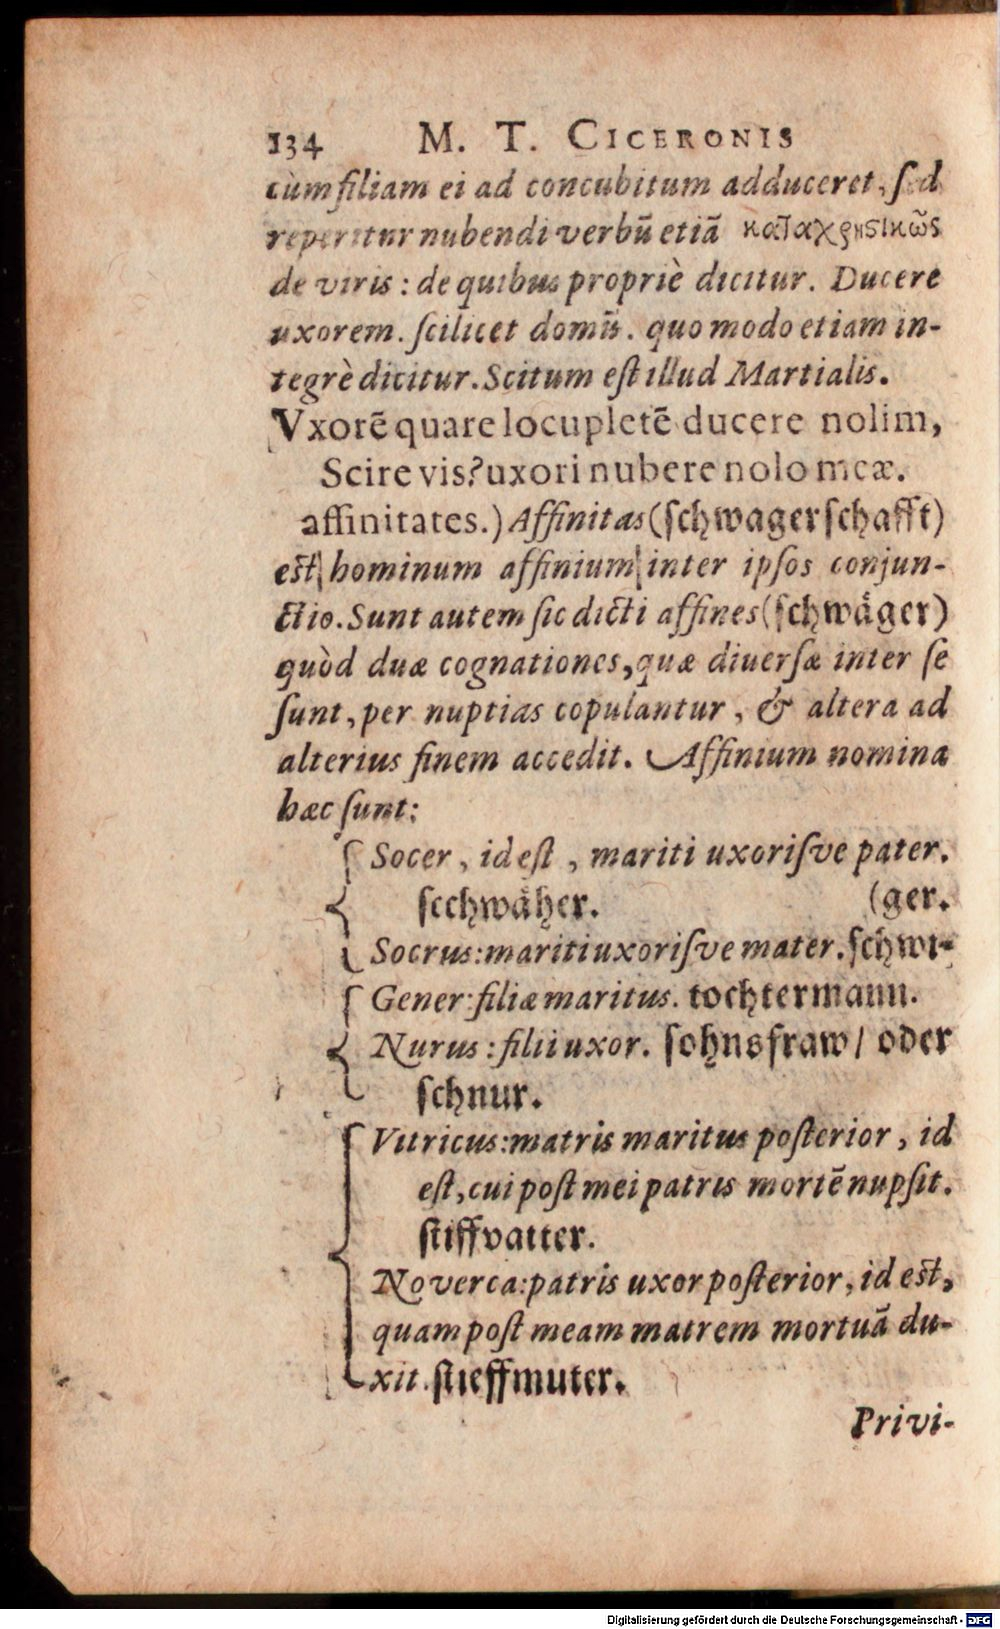 134 M. T. CICERONIS
cùm filiam ei ad concubitum adduceret, ſed
reperitur nubendi verbũ etiã καταχρηστικῶς
de viris: de quibus propriè dicitur. Ducere
uxorem. ſcilicet domũ. quo modo etiam in-
tegrè dicitur. Scitum eſt illud Martialis.
Vxorē quare locupletē ducere nolim,
Scire vis? uxori nubere nolo meæ.
affinitates.) Affinitas (ſchwagerſchafft)
eſt hominum affinium inter ipſos conjun-
ctio. Sunt autem ſic dicti affines (ſchwäger)
quòd duæ cognationes, quæ diuerſæ inter ſe
ſunt, per nuptias copulantur, & altera ad
alterius finem accedit. Affinium nomina
hæc ſunt:
Socer, id eſt, mariti uxoriſve pater.
ſcchwäher. (ger.
Socrus: mariti uxoriſve mater. ſchwi-
Gener: filiæ maritus. tochtermann.
Nurus: filii uxor. ſohnsfraw / oder
ſchnur.
Vitricus: matris maritus poſterior, id
eſt, cui poſt mei patris mortē nupſit.
ſtiffvatter.
Noverca: patris uxor poſterior, id eſt,
quam poſt meam matrem mortuã du-
xit. ſtieffmuter.
Privi-
Digitalisierung gefördert durch die Deutsche Forschungsgemeinschaft - DFG